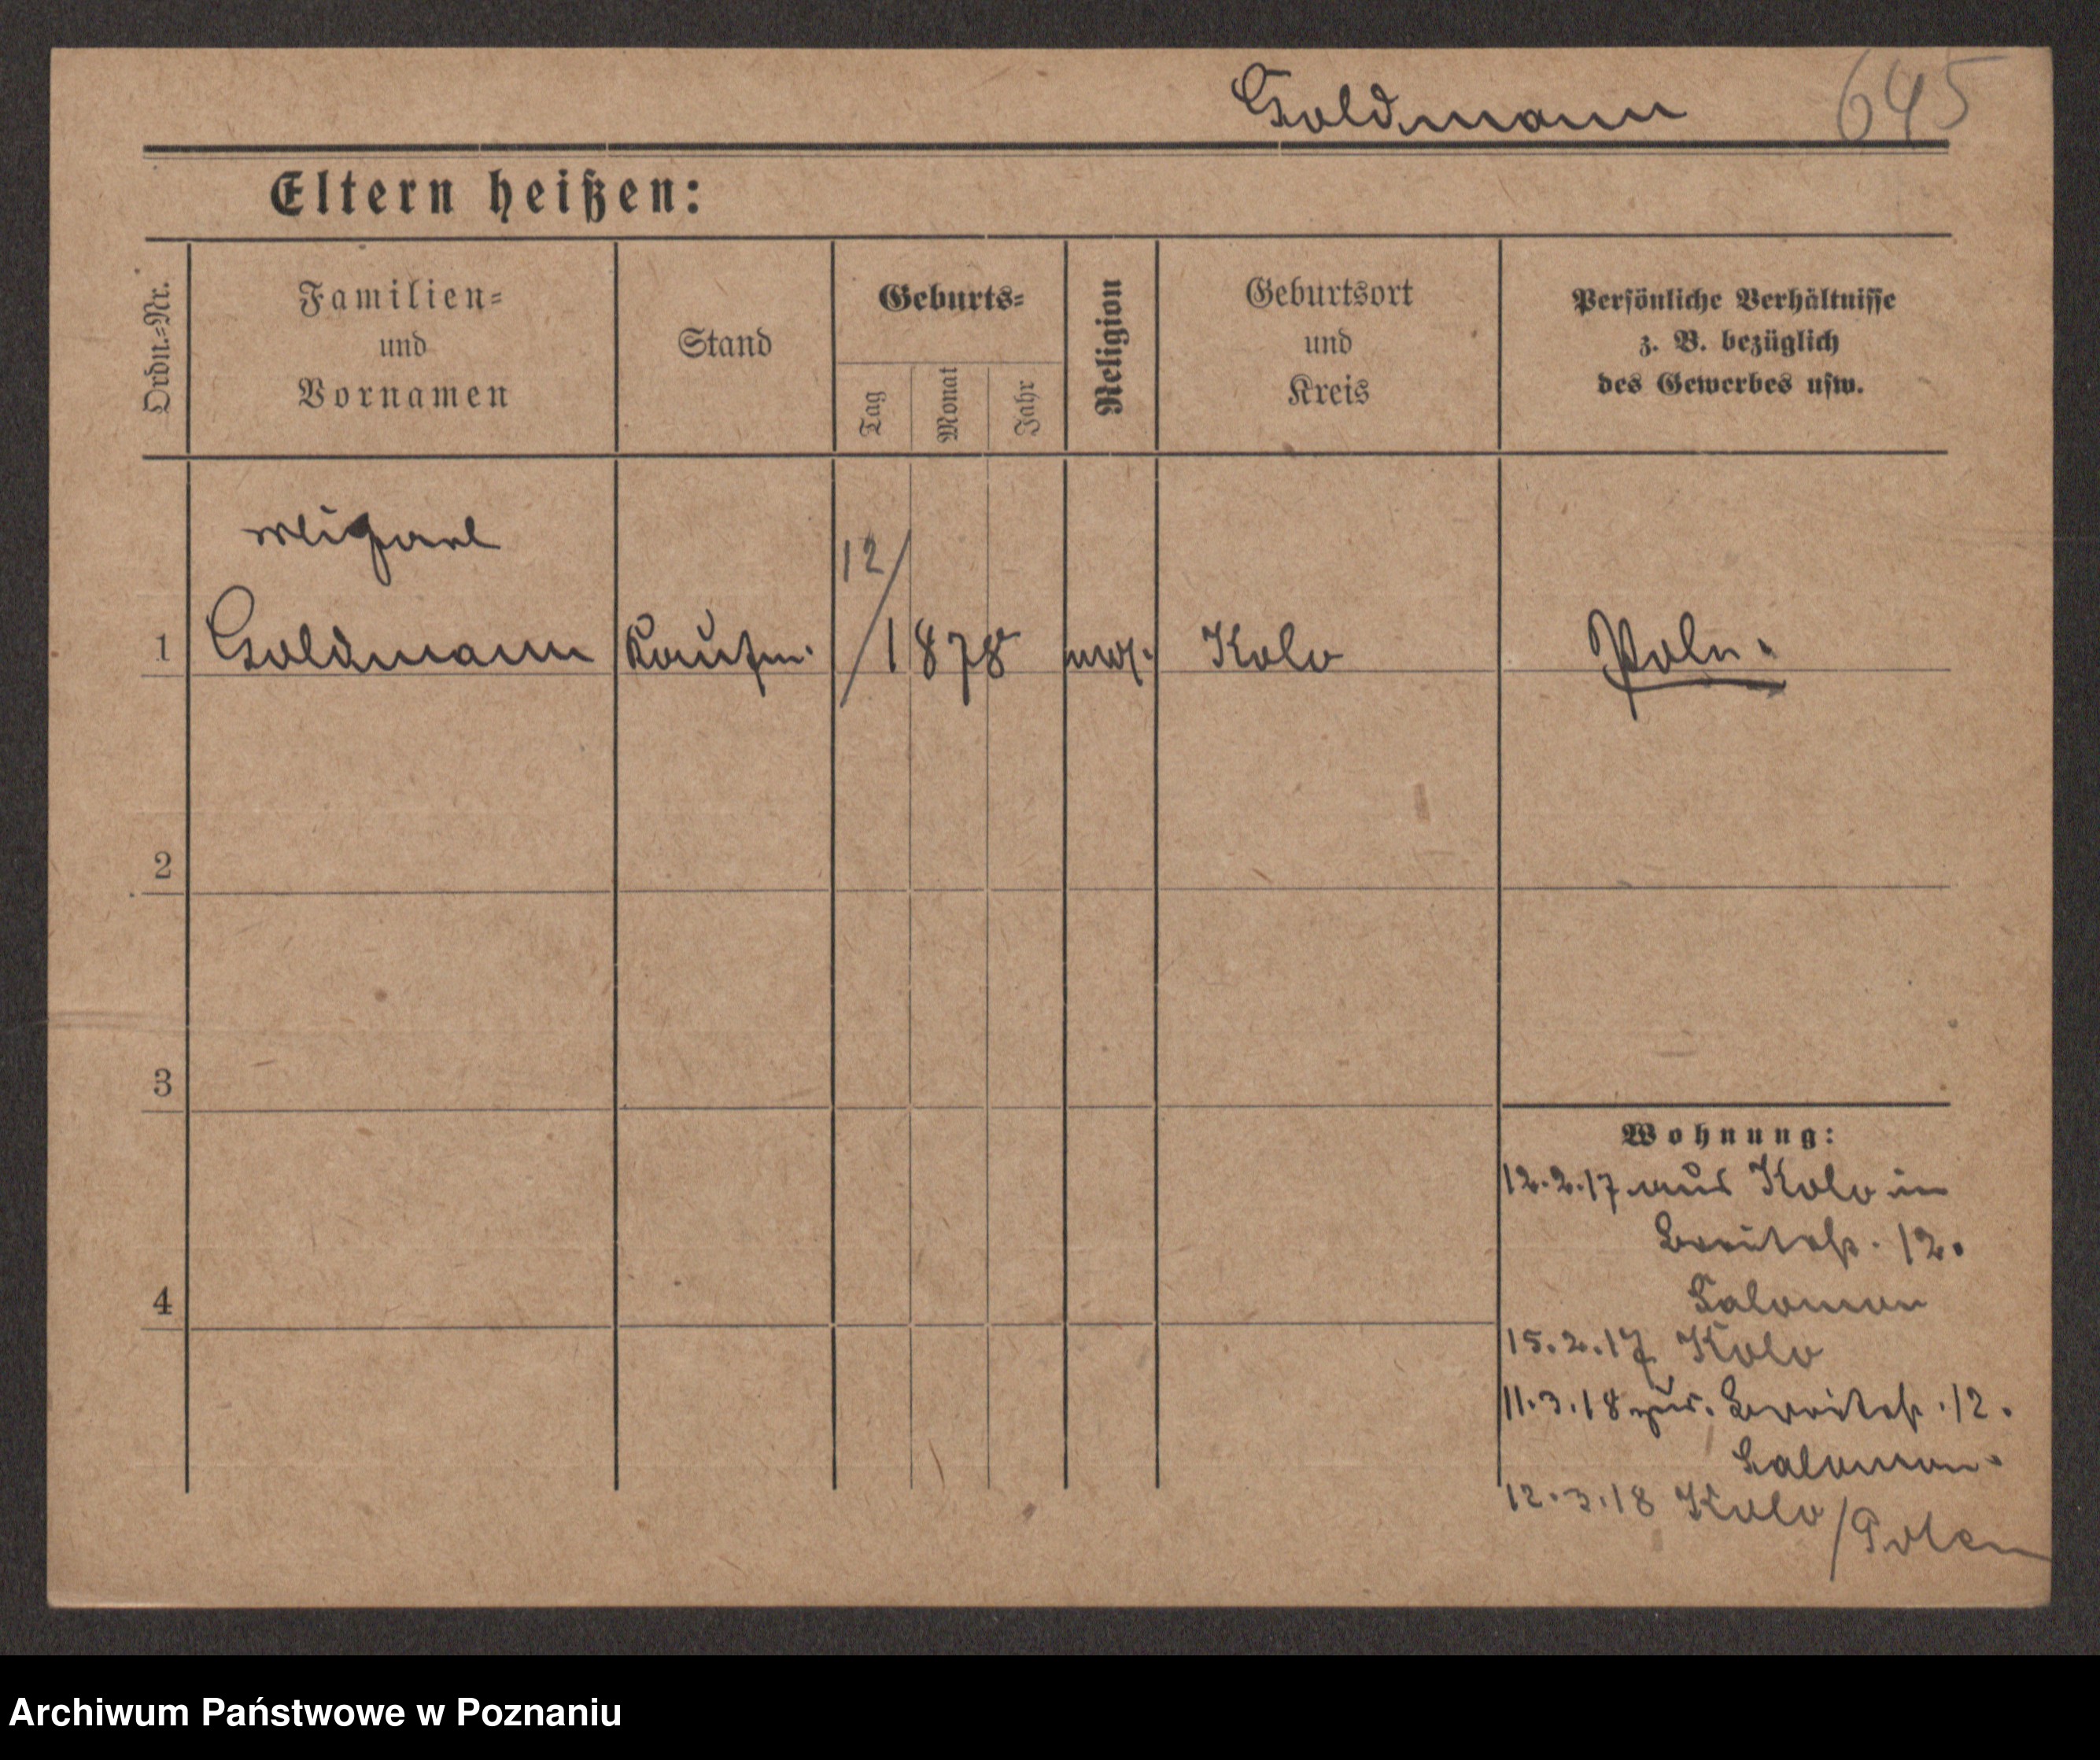 Goldmann 645
Eltern heißen:
Ordn.-Nr.
Familien-
und
Vornamen
Stand
Geburts-
Tag
Monat
Jahr
Religion
Geburtsort
und
Kreis
Persönliche Verhältnisse
z. B. bezüglich
des Gewerbes usw.
12/
1 Goldmann Kaufm. 1 878 mos. Kolo Poln.
2
3
4
Wohnung:
12.2.17 aus Kolo in
Breitestr. 12.
Salomon
15.2.17 Kolo
11.3.18 zur. Breitestr. 12.
Salomon.
12.3.18 Kolo/Polen
Archiwum Państwowe w Poznaniu